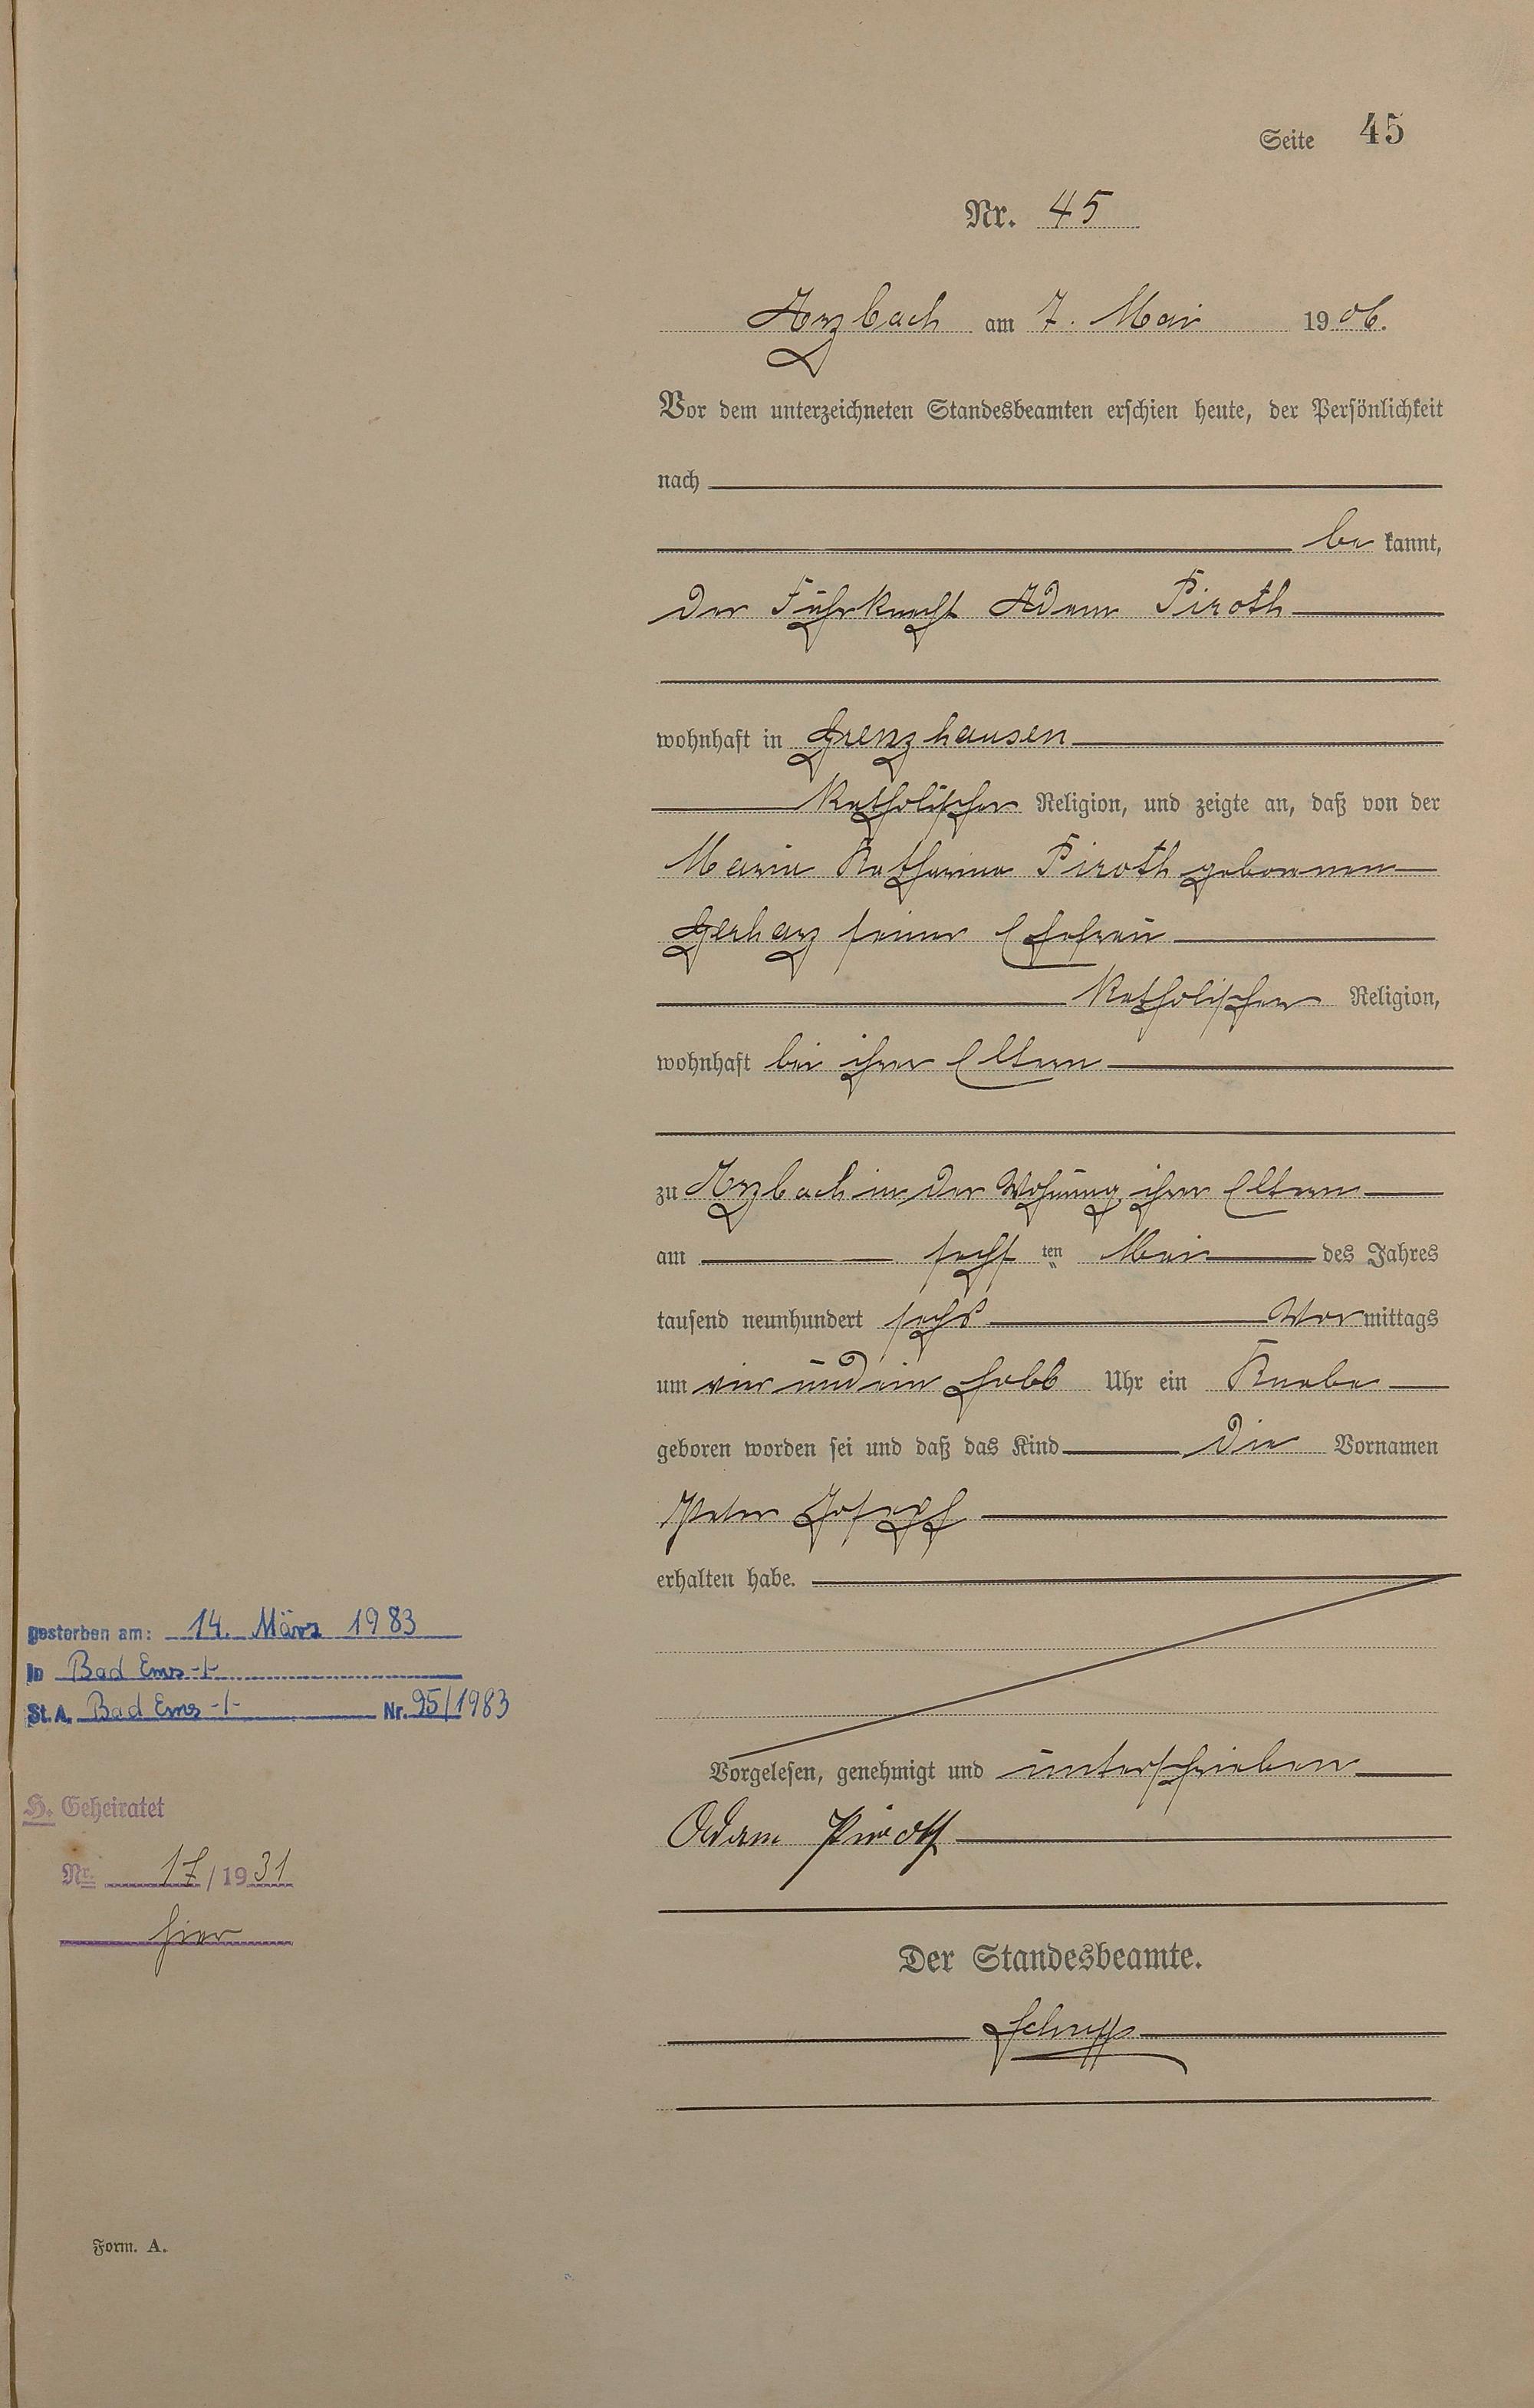 Seite 45
Nr. 45
Arzbach am 7. Mai 1906.
Vor dem unterzeichneten Standesbeamten erschien heute, der Persönlichkeit
nach
bekannt,
der Fuhrknecht Adam Piroth
wohnhaft in Grenzhausen
katholischer Religion, und zeigte an, daß von der
Maria Katharina Piroth geborenen
Gerharz seiner Ehefrau
katholischer Religion,
wohnhaft bei ihren Eltern
zu Arzbach in der Wohnung ihrer Eltern
am sechsten Mai des Jahres
tausend neunhundert sechs Vormittags
um vier und ein halb Uhr ein Knabe
geboren worden sei und daß das Kind die Vornamen
Peter Joseph
erhalten habe.
gestorben am: 14. März 1983
in Bad Ems -/-
St.A. Bad Ems -/- Nr. 95/1983
Vorgelesen, genehmigt und unterschrieben
Adam Piroth
H. Geheiratet
Nr. 17/1931
hier
Der Standesbeamte.
Form. A.